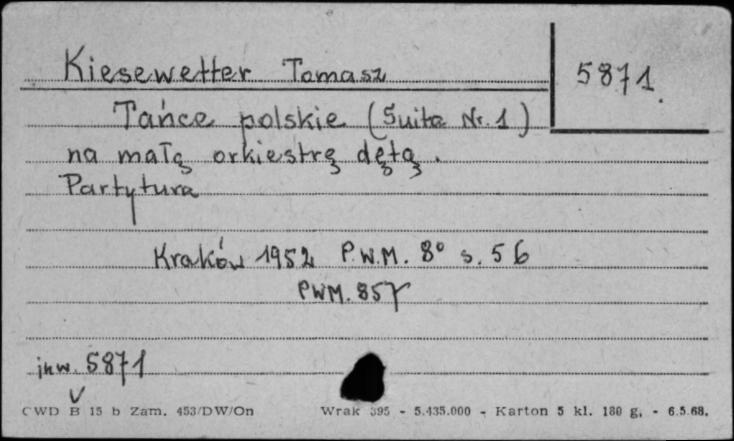 Kiesewetter Tomasz
5871.
Tańce polskie (Suita Nr. 1)
na małą orkiestrę dętą.
Partytura
Kraków 1952 P.W.M. 8° s. 56
PWM. 857
inw. 5871
V
CWD B 15 b Zam. 453/DW/On Wrak 395 - 5.435.000 - Karton 5 kl. 180 g. - 6.5.68.